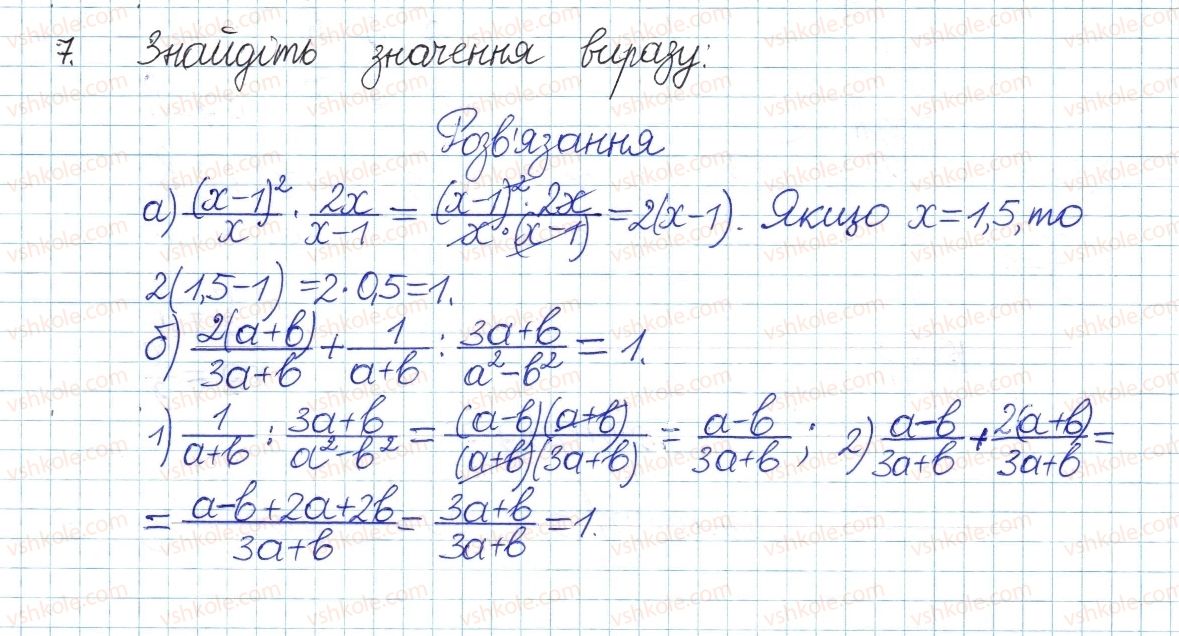 7. Знайдіть значення виразу:
Розв'язання
а) (x-1)²/x · 2x/(x-1) = (x-1)²·2x/(x·(x-1)) = 2(x-1). Якщо x=1,5, то
2(1,5-1) = 2·0,5 = 1.
б) 2(a+b)/(3a+b) + 1/(a+b) : (3a+b)/(a²-b²) = 1.
1) 1/(a+b) : (3a+b)/(a²-b²) = (a-b)(a+b)/((a+b)(3a+b)) = (a-b)/(3a+b); 2) (a-b)/(3a+b) + 2(a+b)/(3a+b) =
= (a-b+2a+2b)/(3a+b) = (3a+b)/(3a+b) = 1.
vshkole.com